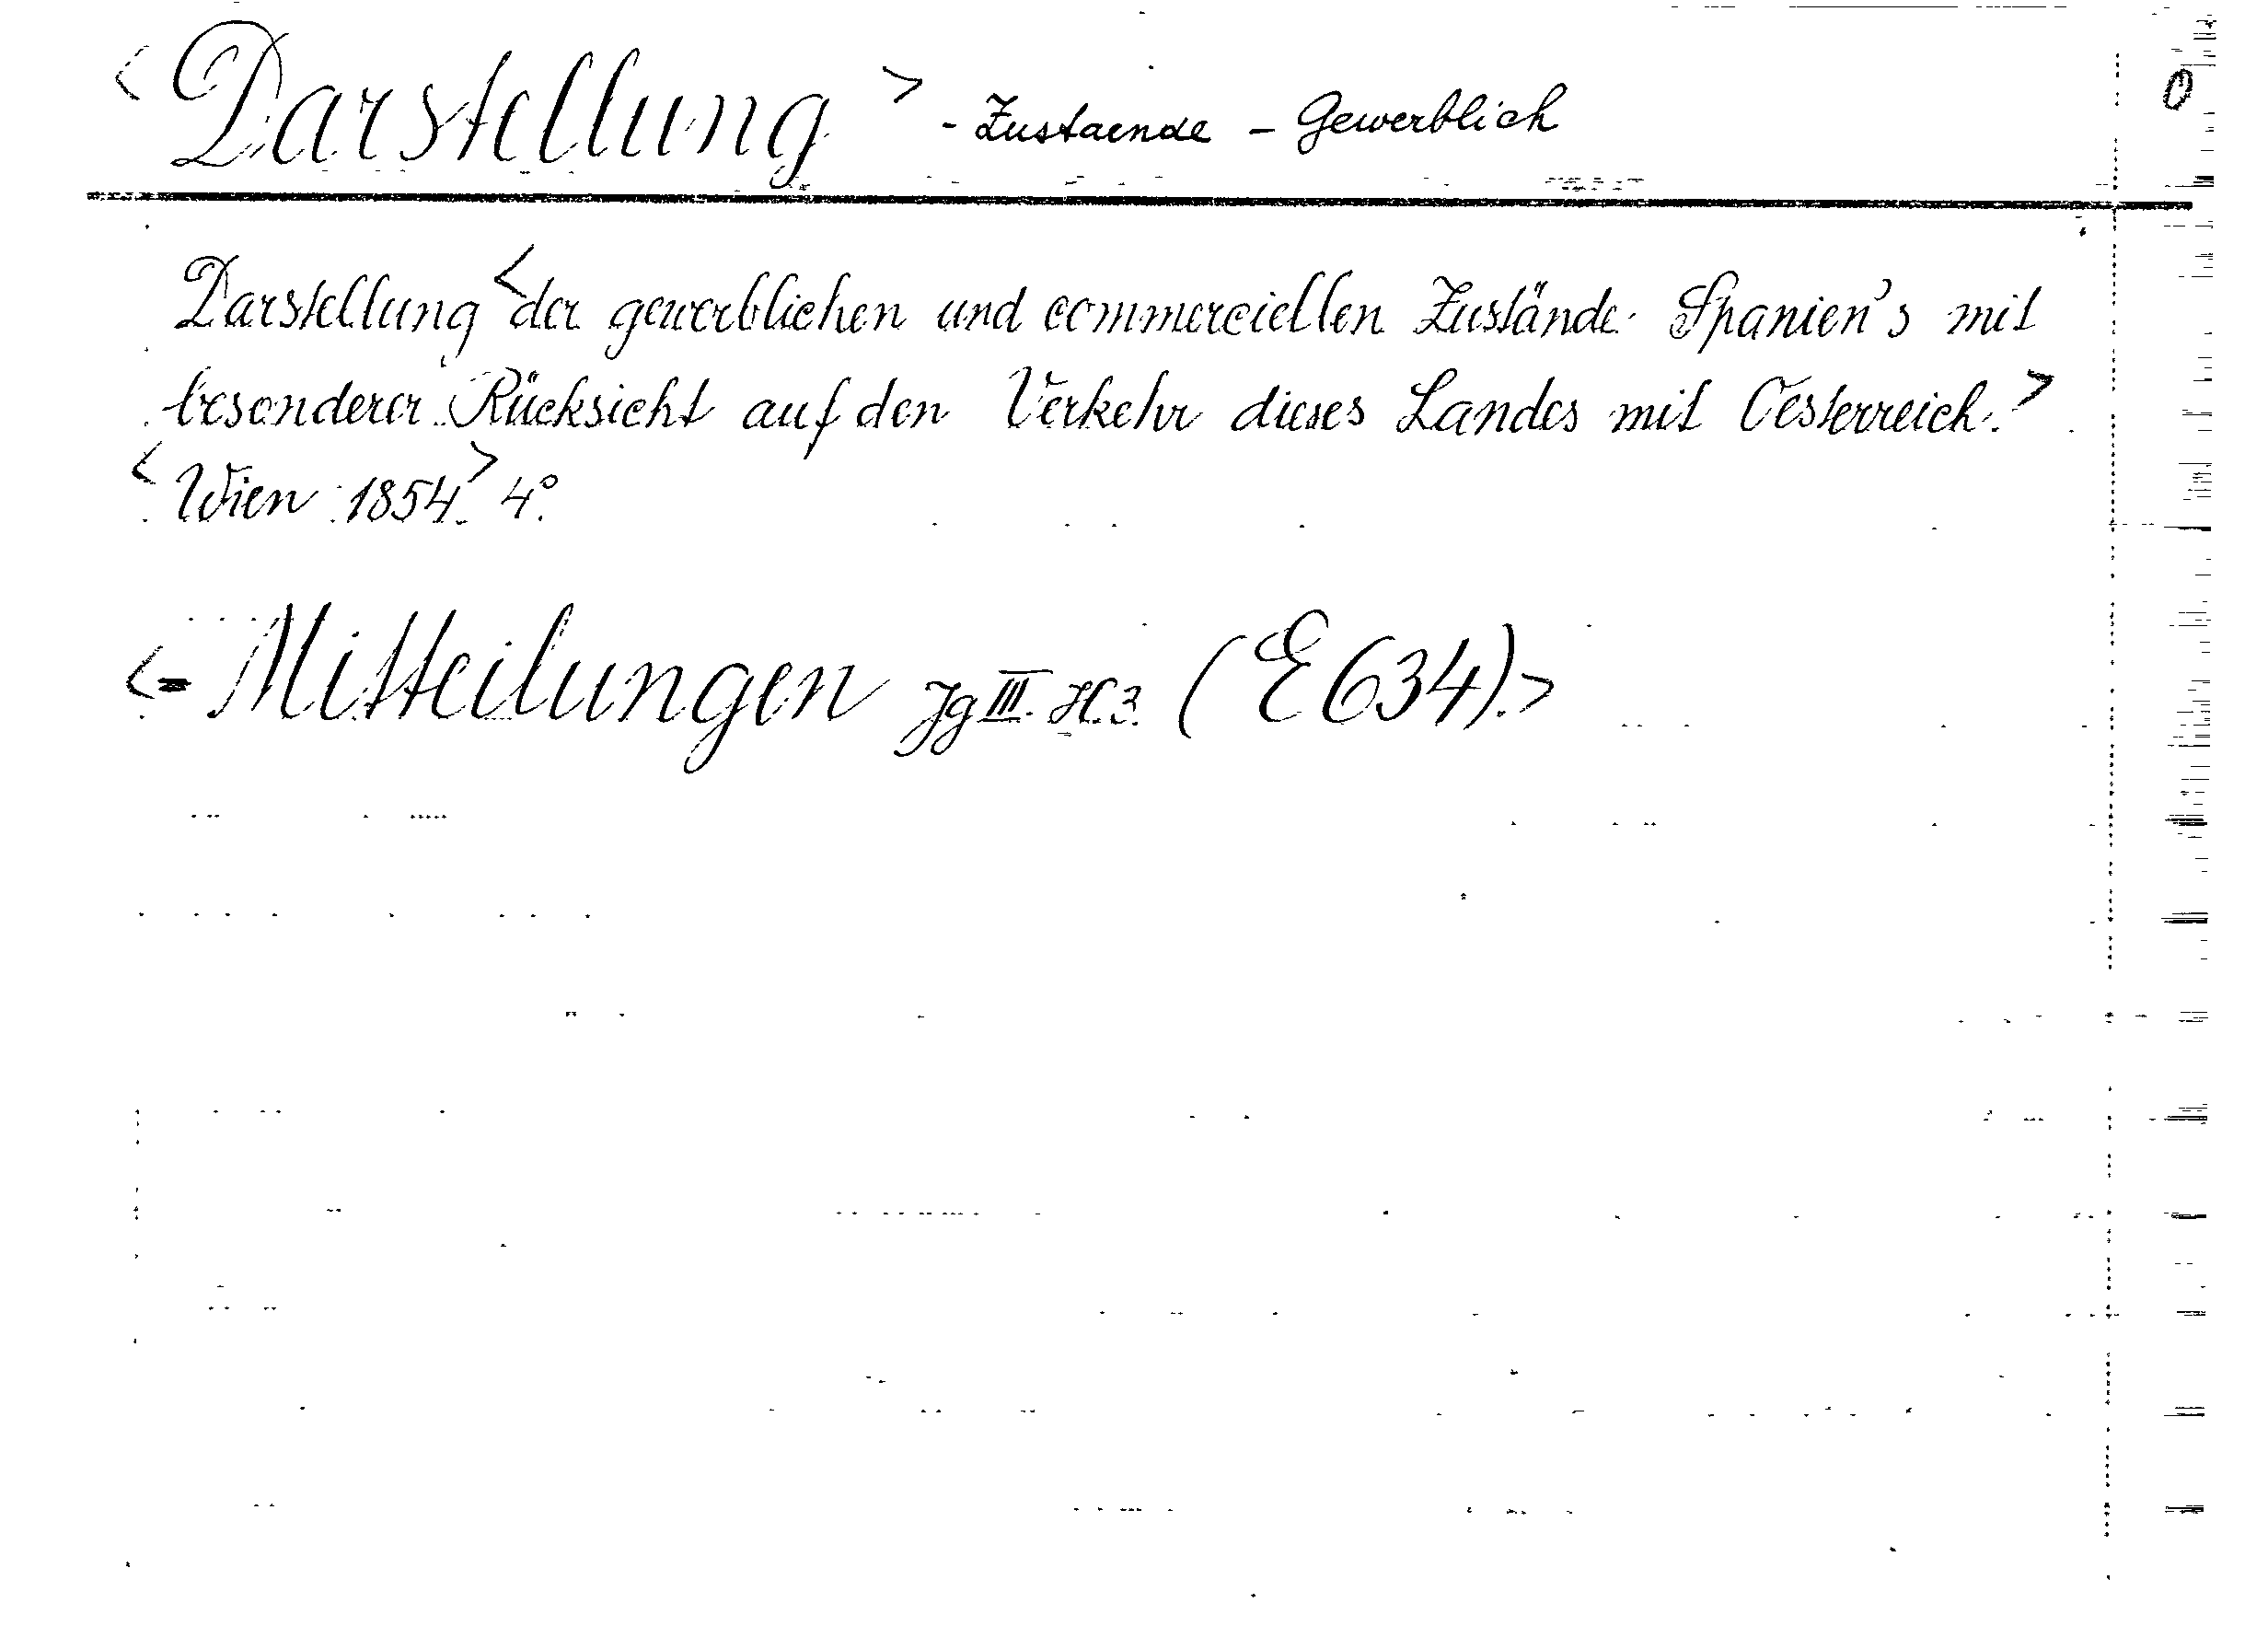 <Darstellung> - Zustaende - Gewerblich O
Darstellung <der gewerblichen und commerciellen Zustände Spanien's mit
besonderer Rücksicht auf den Verkehr dieses Landes mit Oesterreich.>
<Wien 1854.> 4°.
<= Mitteilungen Jg III. H. 3. (E 634).>